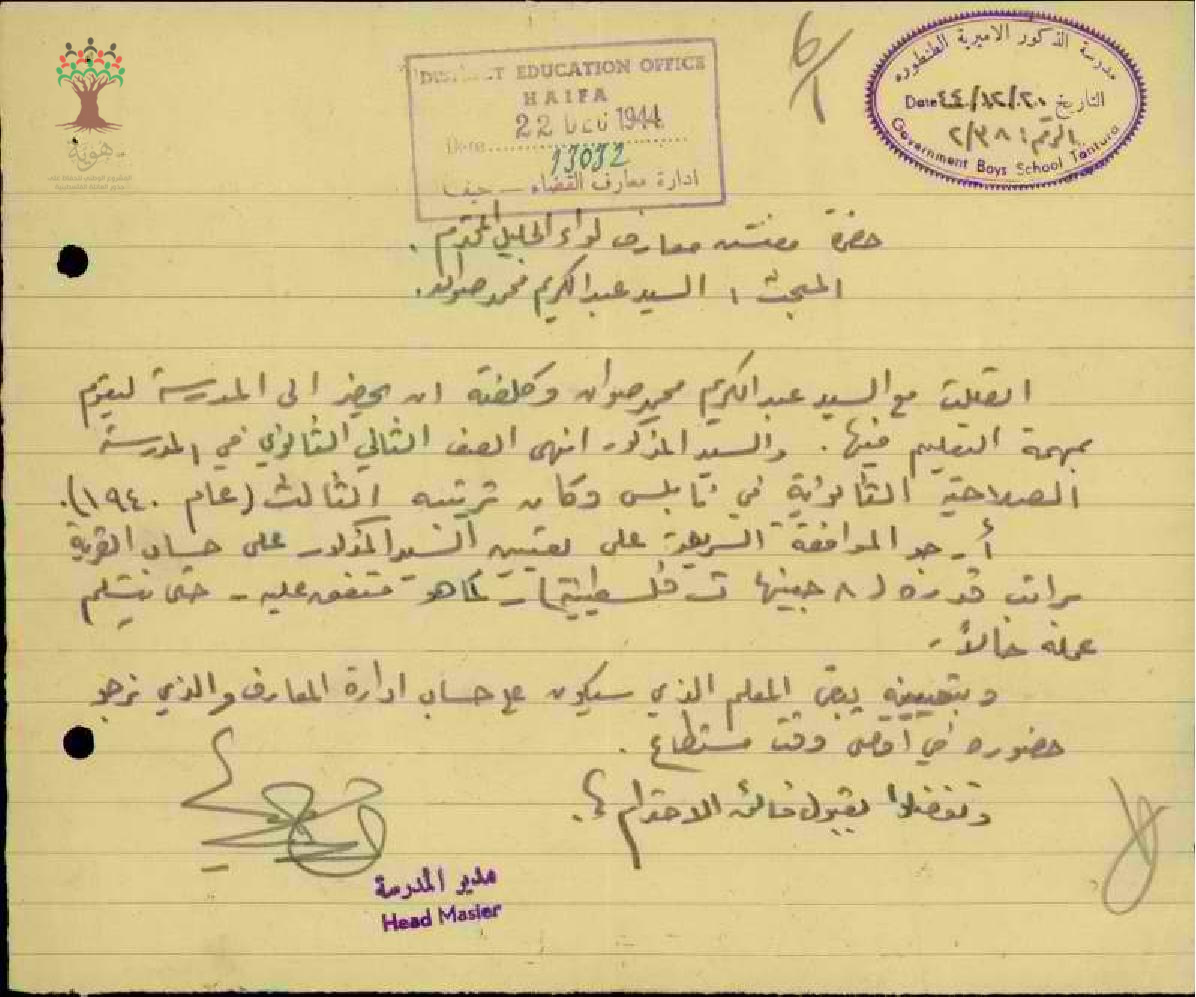 هوية
المشروع الوطني للحفاظ على
جذور العائلة الفلسطينية
DISTRICT EDUCATION OFFICE
HAIFA
22 DEC 1944
Date
13032
ادارة معارف القضاء - حيفا
6/1
مدرسة الذكور الاميرية الطنطوره
التاريخ ٤٤/١٢/٢٠ Date
الرقم: ٢/٣٨
Government Boys School Tantura
حضرة مفتش معارف لواء الجليل المحترم.
المبحث: السيد عبد الكريم محمد صوان.
اتصلت مع السيد عبد الكريم محمد صوان وكلفته ان يحضر الى المدرسة ليقوم
بمهمة التعليم فيها. والسيد المذكور انهى الصف الثاني الثانوي في المدرسة
الصلاحية الثانوية في نابلس وكان ترتيبه الثالث (عام ١٩٤٠).
أرجو الموافقة السريعة على تعيين السيد المذكور على حساب القرية
براتب قدره (٨ جنيهات فلسطينية) - كما هو متفق عليه - حتى يتسلم
عمله حالاً.
وبتعيينه يبقى المعلم الذي سيكون على حساب ادارة المعارف والذي نرجو
حضوره في اقصى وقت مستطاع.
وتفضلوا بقبول فائق الاحترام
مدير المدرسة
Head Master